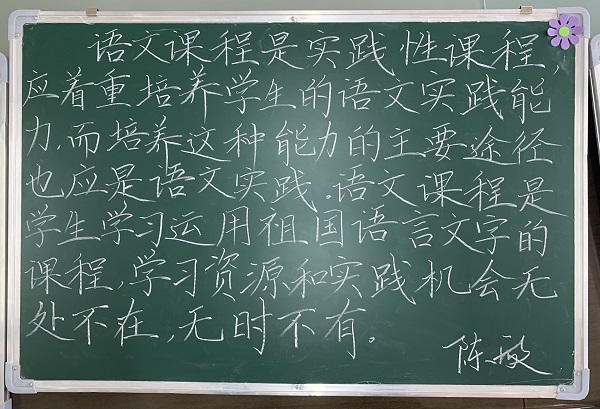 语文课程是实践性课程,
应着重培养学生的语文实践能
力,而培养这种能力的主要途径
也应是语文实践。语文课程是
学生学习运用祖国语言文字的
课程,学习资源和实践机会无
处不在,无时不有。
陈敏